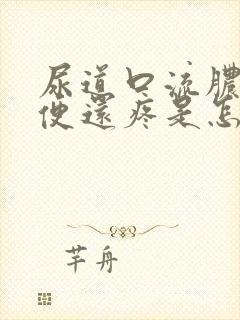 尿道口流膿
便還疼是怎
芊舟